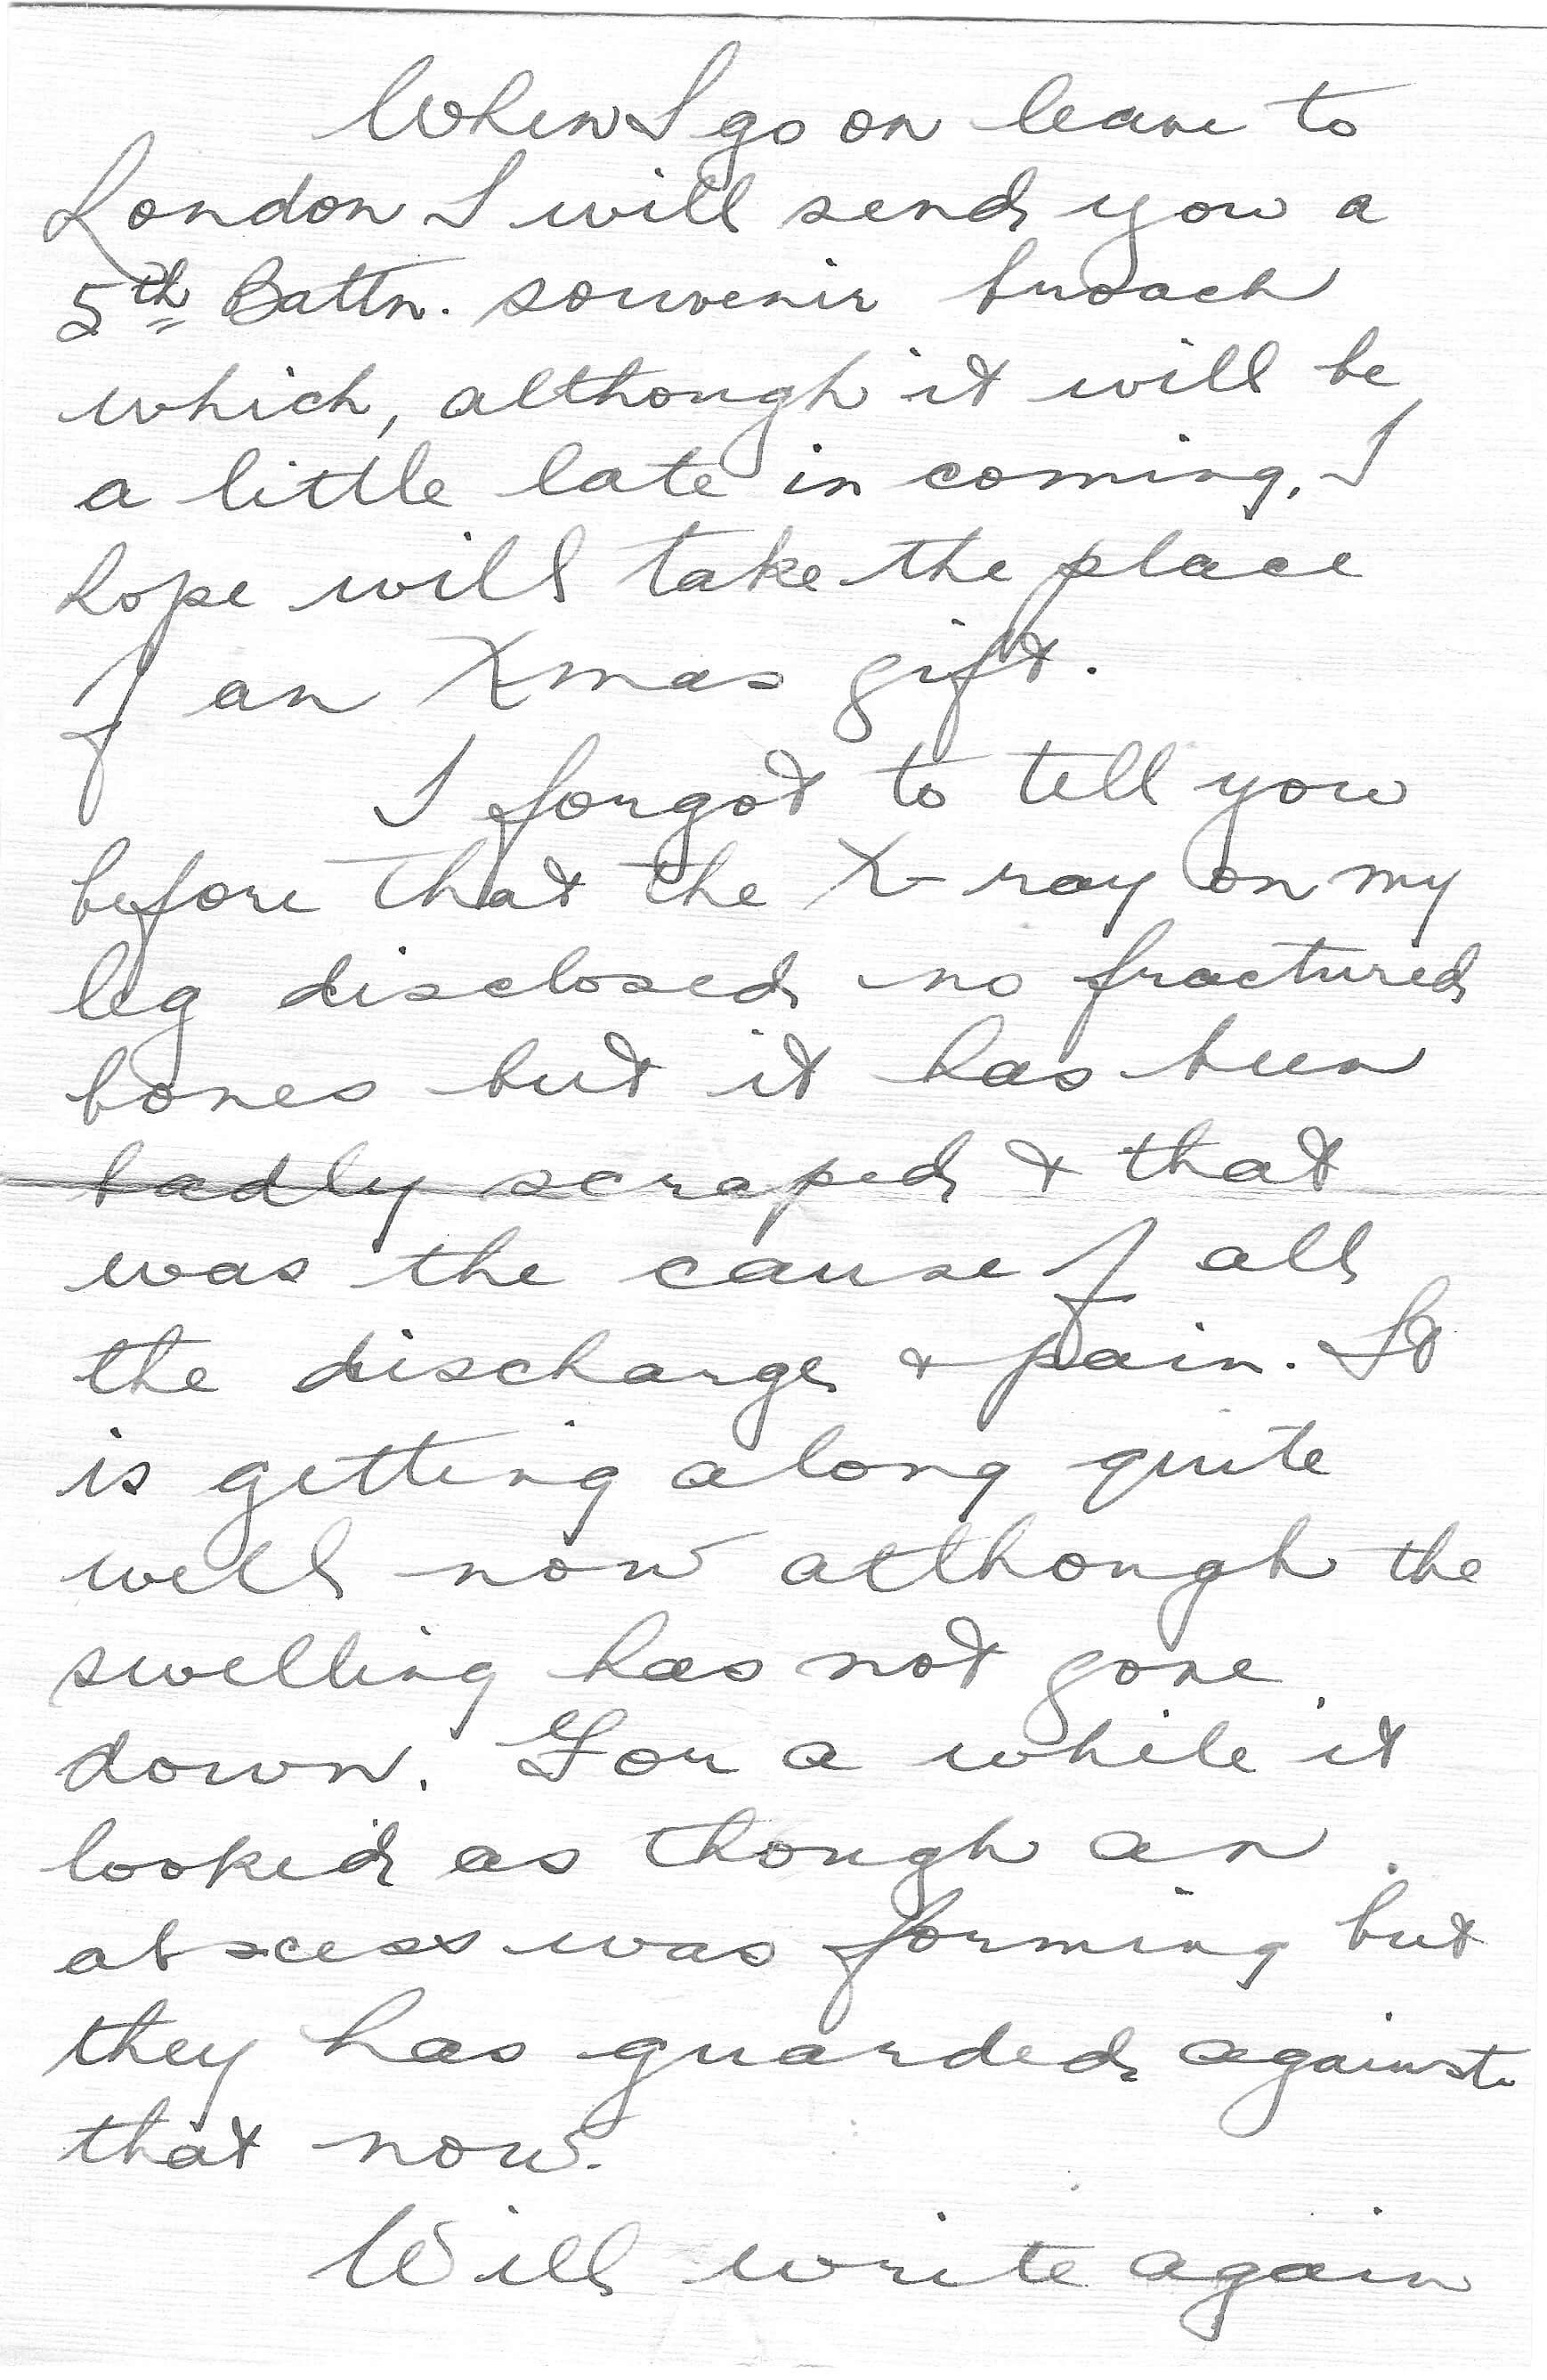 When I go on leave to
London I will send you a
5th Battn. souvenir broach
which, although it will be
a little late in coming, I
hope will take the place
of an Xmas gift.
I forgot to tell you
before that the X-ray on my
leg disclosed no fractured
bones but it has been
badly scraped & that
was the cause of all
the discharge & pain. It
is getting along quite
well now although the
swelling has not gone
down. For a while it
looked as though an
abscess was forming but
they has guarded against
that now.
Will write again